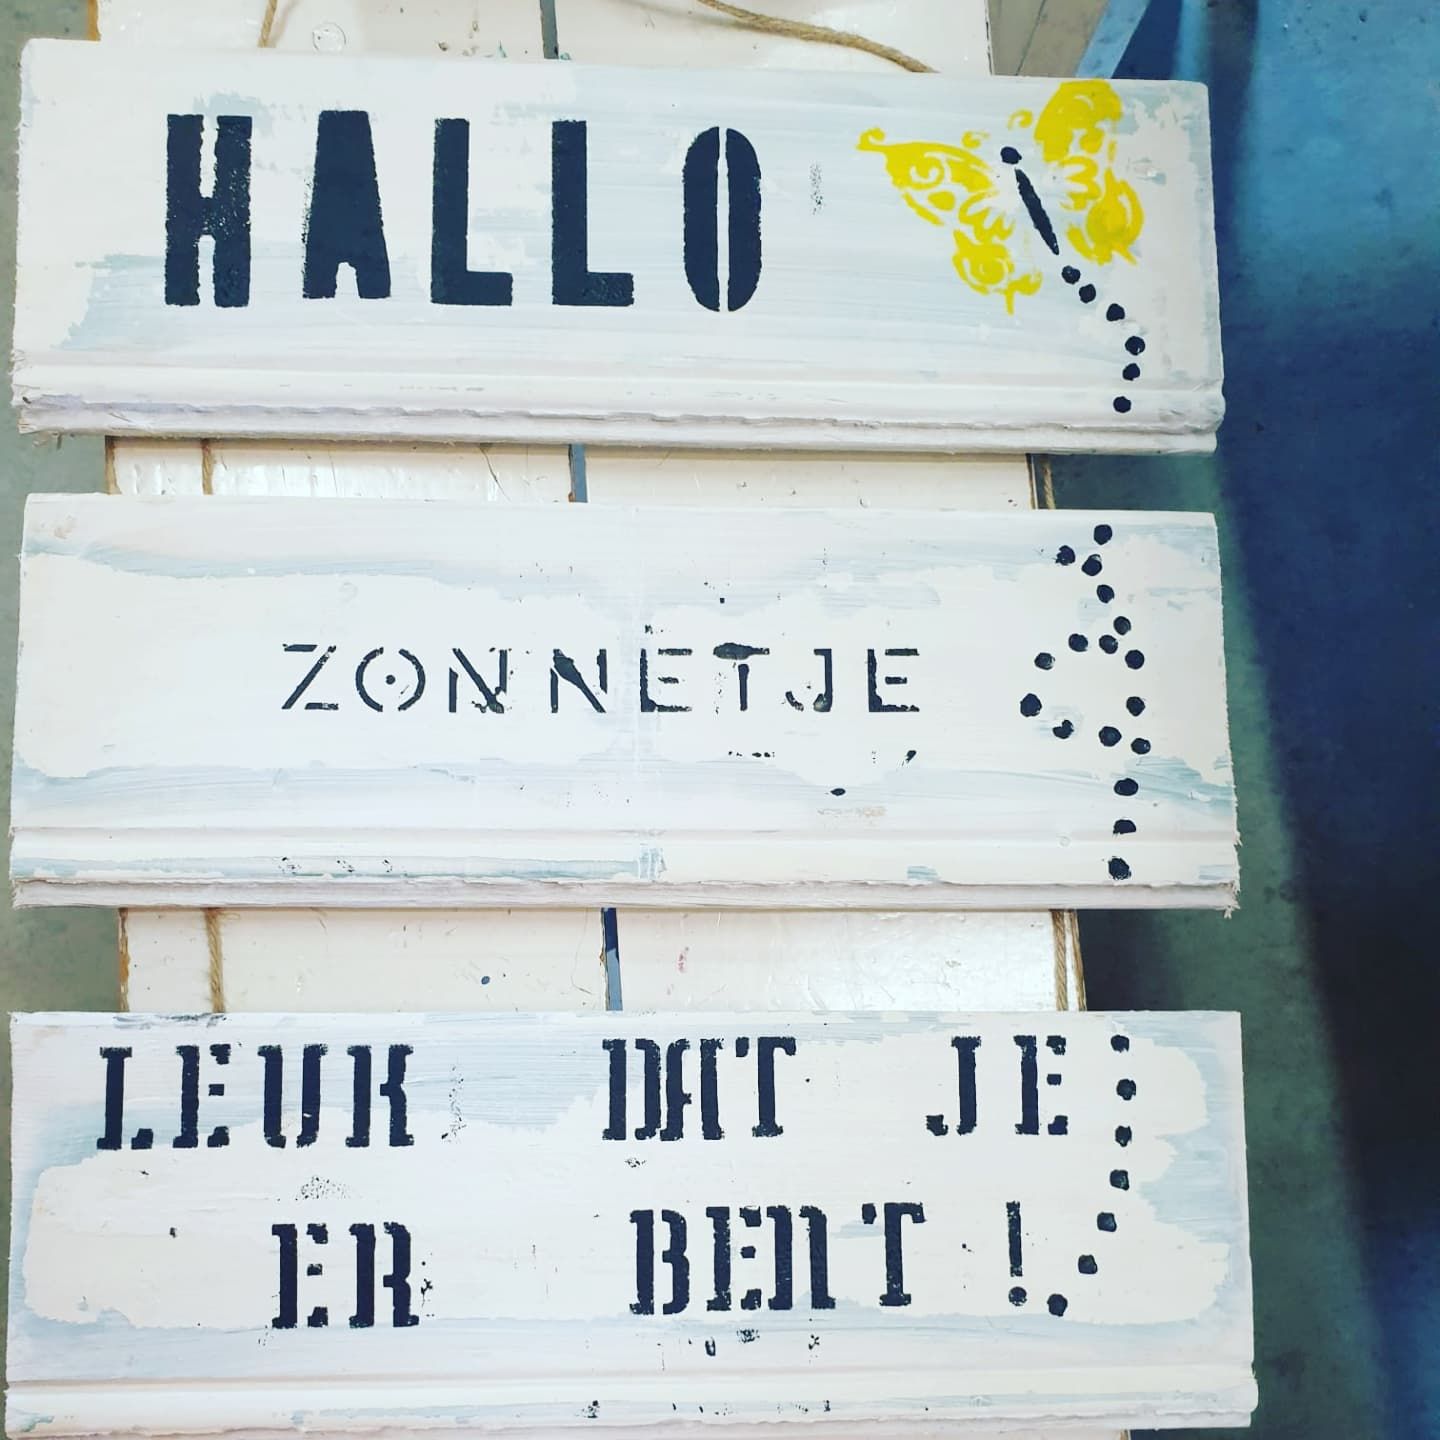 HALLO
ZONNETJE
LEUK DAT JE
ER BENT!